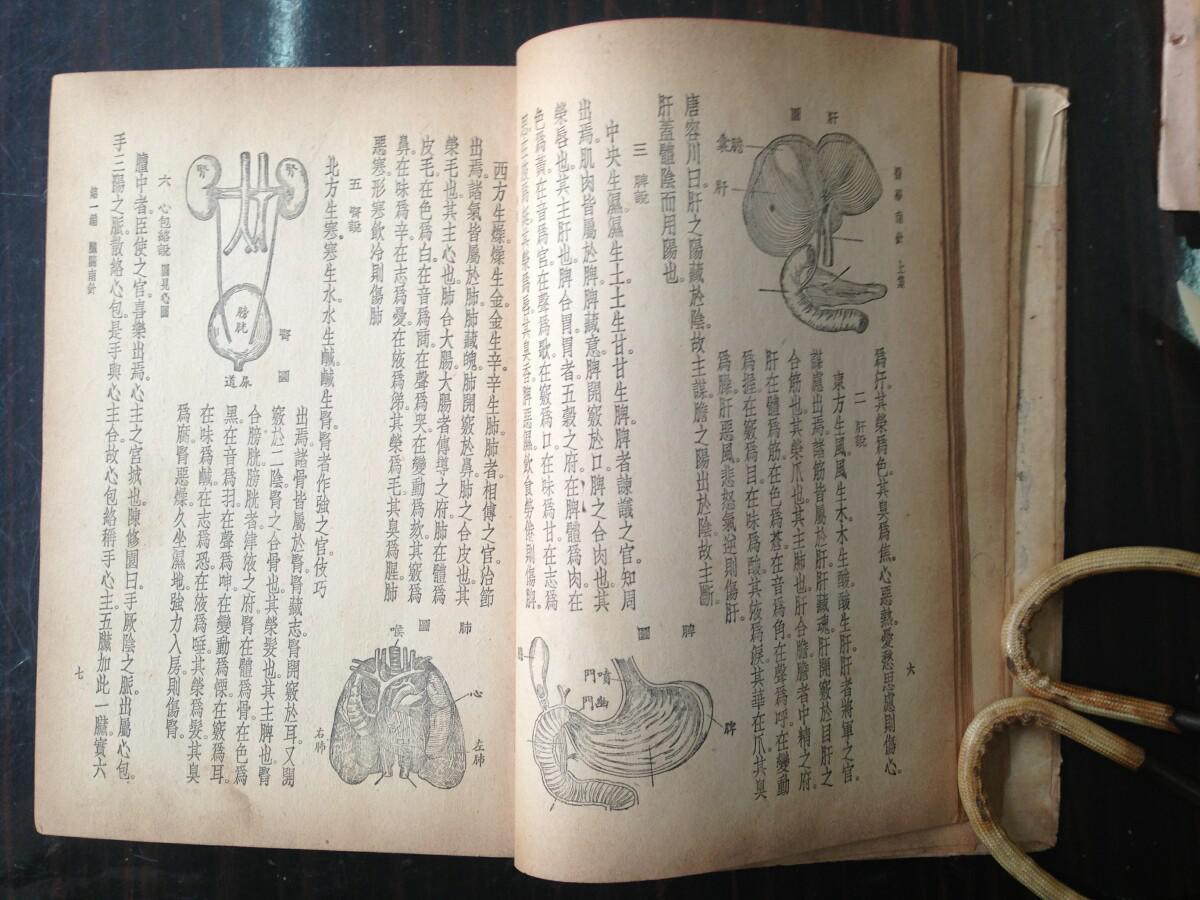 上集
六
爲汗其榮爲色其臭爲焦心惡熱憂愁思慮則傷心。
二 肝說
東方生風風生木木生酸酸生肝肝者將軍之官。
謀慮出焉諸筋皆屬於肝肝藏魂肝開竅於目肝之
合筋也其榮爪也其主肺也肝合膽膽者中精之府。
肝在體爲筋在色爲蒼在音爲角在聲爲呼在變動
爲握在竅爲目在味爲酸其液爲淚其華在爪其臭
爲臊肝惡風悲怒氣逆則傷肝。
肝圖
膽囊
肝
唐容川曰肝之陽藏於陰故主謀膽之陽出於陰故主斷。
肝蓋體陰而用陽也。
三 脾說
中央生濕濕生土土生甘甘生脾脾者諫議之官。知周
出焉。肌肉皆屬於脾脾藏意脾開竅於口。脾之合肉也其
榮唇也其主肝也脾合胃胃者五穀之府在脾體爲肉在
色爲黃在音爲宮在聲爲歌在竅爲口在味爲甘在志爲
脾惡濕飲食勞倦則傷脾。
脾圖
脾
賁門
幽門
西方生燥燥生金金生辛辛生肺肺者相傅之官治節
出焉。諸氣皆屬於肺肺藏魄肺開竅於鼻肺之合皮也其
榮毛也其主心也肺合大腸大腸者傳導之府肺在體爲
皮毛在色爲白在音爲商在聲爲哭在變動爲欬其竅爲
鼻在味爲辛在志爲憂在液爲涕其榮爲毛其臭爲腥肺
惡寒形寒飲冷則傷肺
肺圖
喉
心
左肺
右肺
五 腎說
北方生寒寒生水水生鹹鹹生腎腎者作強之官伎巧
出焉。諸骨皆屬於腎腎藏志腎開竅於耳又開
竅於二陰腎之合骨也其榮髮也其主脾也腎
合膀胱膀胱者津液之府腎在體爲骨在色爲
黑在音爲羽在聲爲呻在變動爲慄在竅爲耳
在味爲鹹在志爲恐在液爲唾其榮爲髮其臭
爲腐腎惡燥久坐濕地強力入房則傷腎。
腎圖
腎
腎
膀胱
尿道
六 心包絡說 圖見心圖
膻中者臣使之官喜樂出焉心主之宮城也陳修園曰手厥陰之脈出屬心包。
手三陽之脈散絡心包是手與心主合故心包絡稱手心主五臟加此一臟實六
第一編 臟腑南針
七